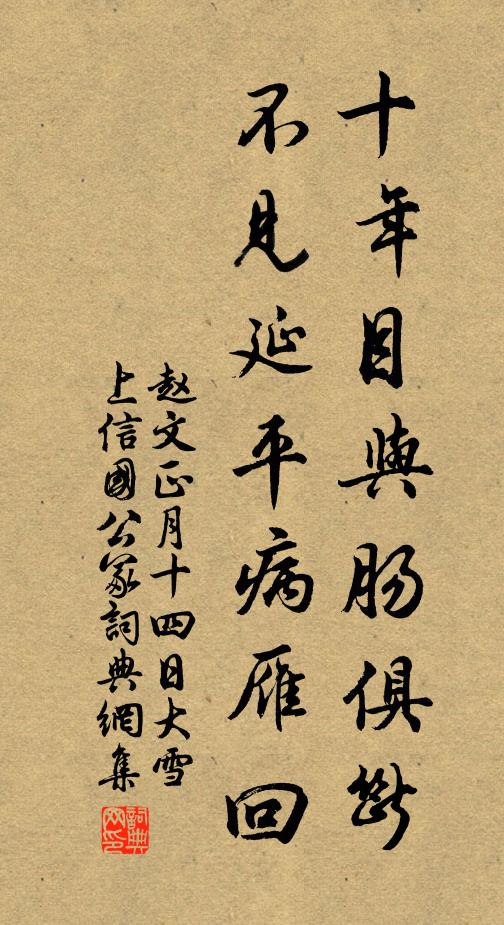 十年目與肠俱斷
不見延平病雁回
赵文正月十四日大雪
上信國公冢詞典網集
詞典网印